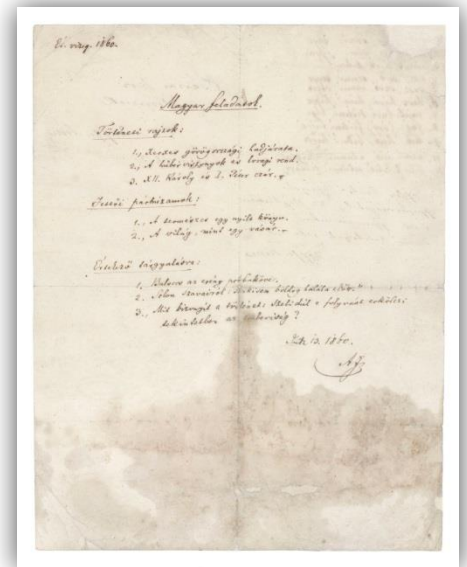 Év. vizsg. 1860.
Magyar feladatok.
Történeti rajzok:
1., Xerxes görögországi hadjárata.
2., A hűbérviszonyok és lovagi rend.
3. XII. Károly és I. Péter czár.
párhuzamok:
1., A természet egy nyílt könyv.
2., A világ, mint egy vásár.
Értekező tárgyalásra:
1, Balsors az erény próbaköve.
2. Solon szavairól: Senkisem boldog halála előtt."
3., Mit bizonyít a történet: Haladát e folyvást erkölcsi
tekintetben az emberiség?
13. 1860.
AJ.